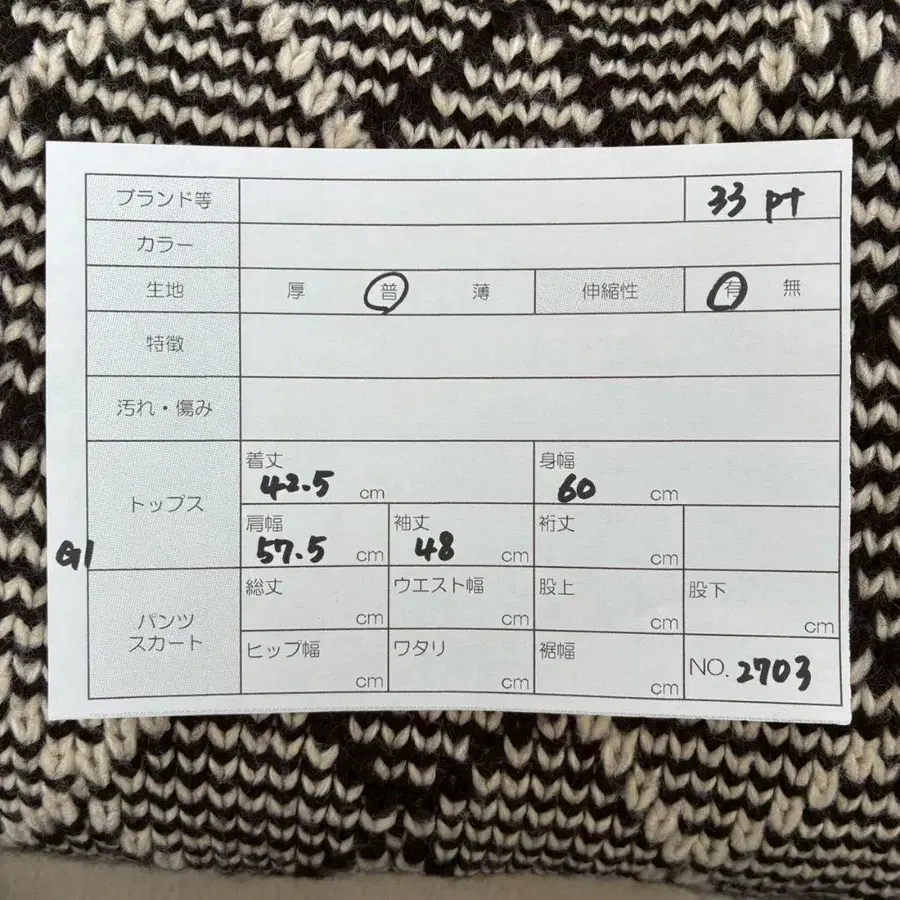 ブランド等 33 pt
カラー
生地 厚 普 薄 伸縮性 有 無
特徴
汚れ・傷み
トップス 着丈 42.5 cm 身幅 60 cm
肩幅 57.5 cm 袖丈 48 cm 裄丈 cm
G1
パンツ スカート 総丈 cm ウエスト幅 cm 股上 cm 股下 cm
ヒップ幅 cm ワタリ cm 裾幅 cm NO. 2703